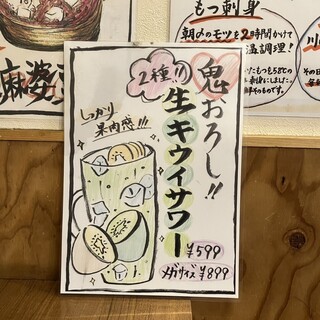 鬼おろし!!
2種!!
生キウイサワー
しっかり
果肉感!!!
¥599
メガサイズ ¥899
麻婆
もつ刺身
朝〆のモツを2時間かけて
温調理!